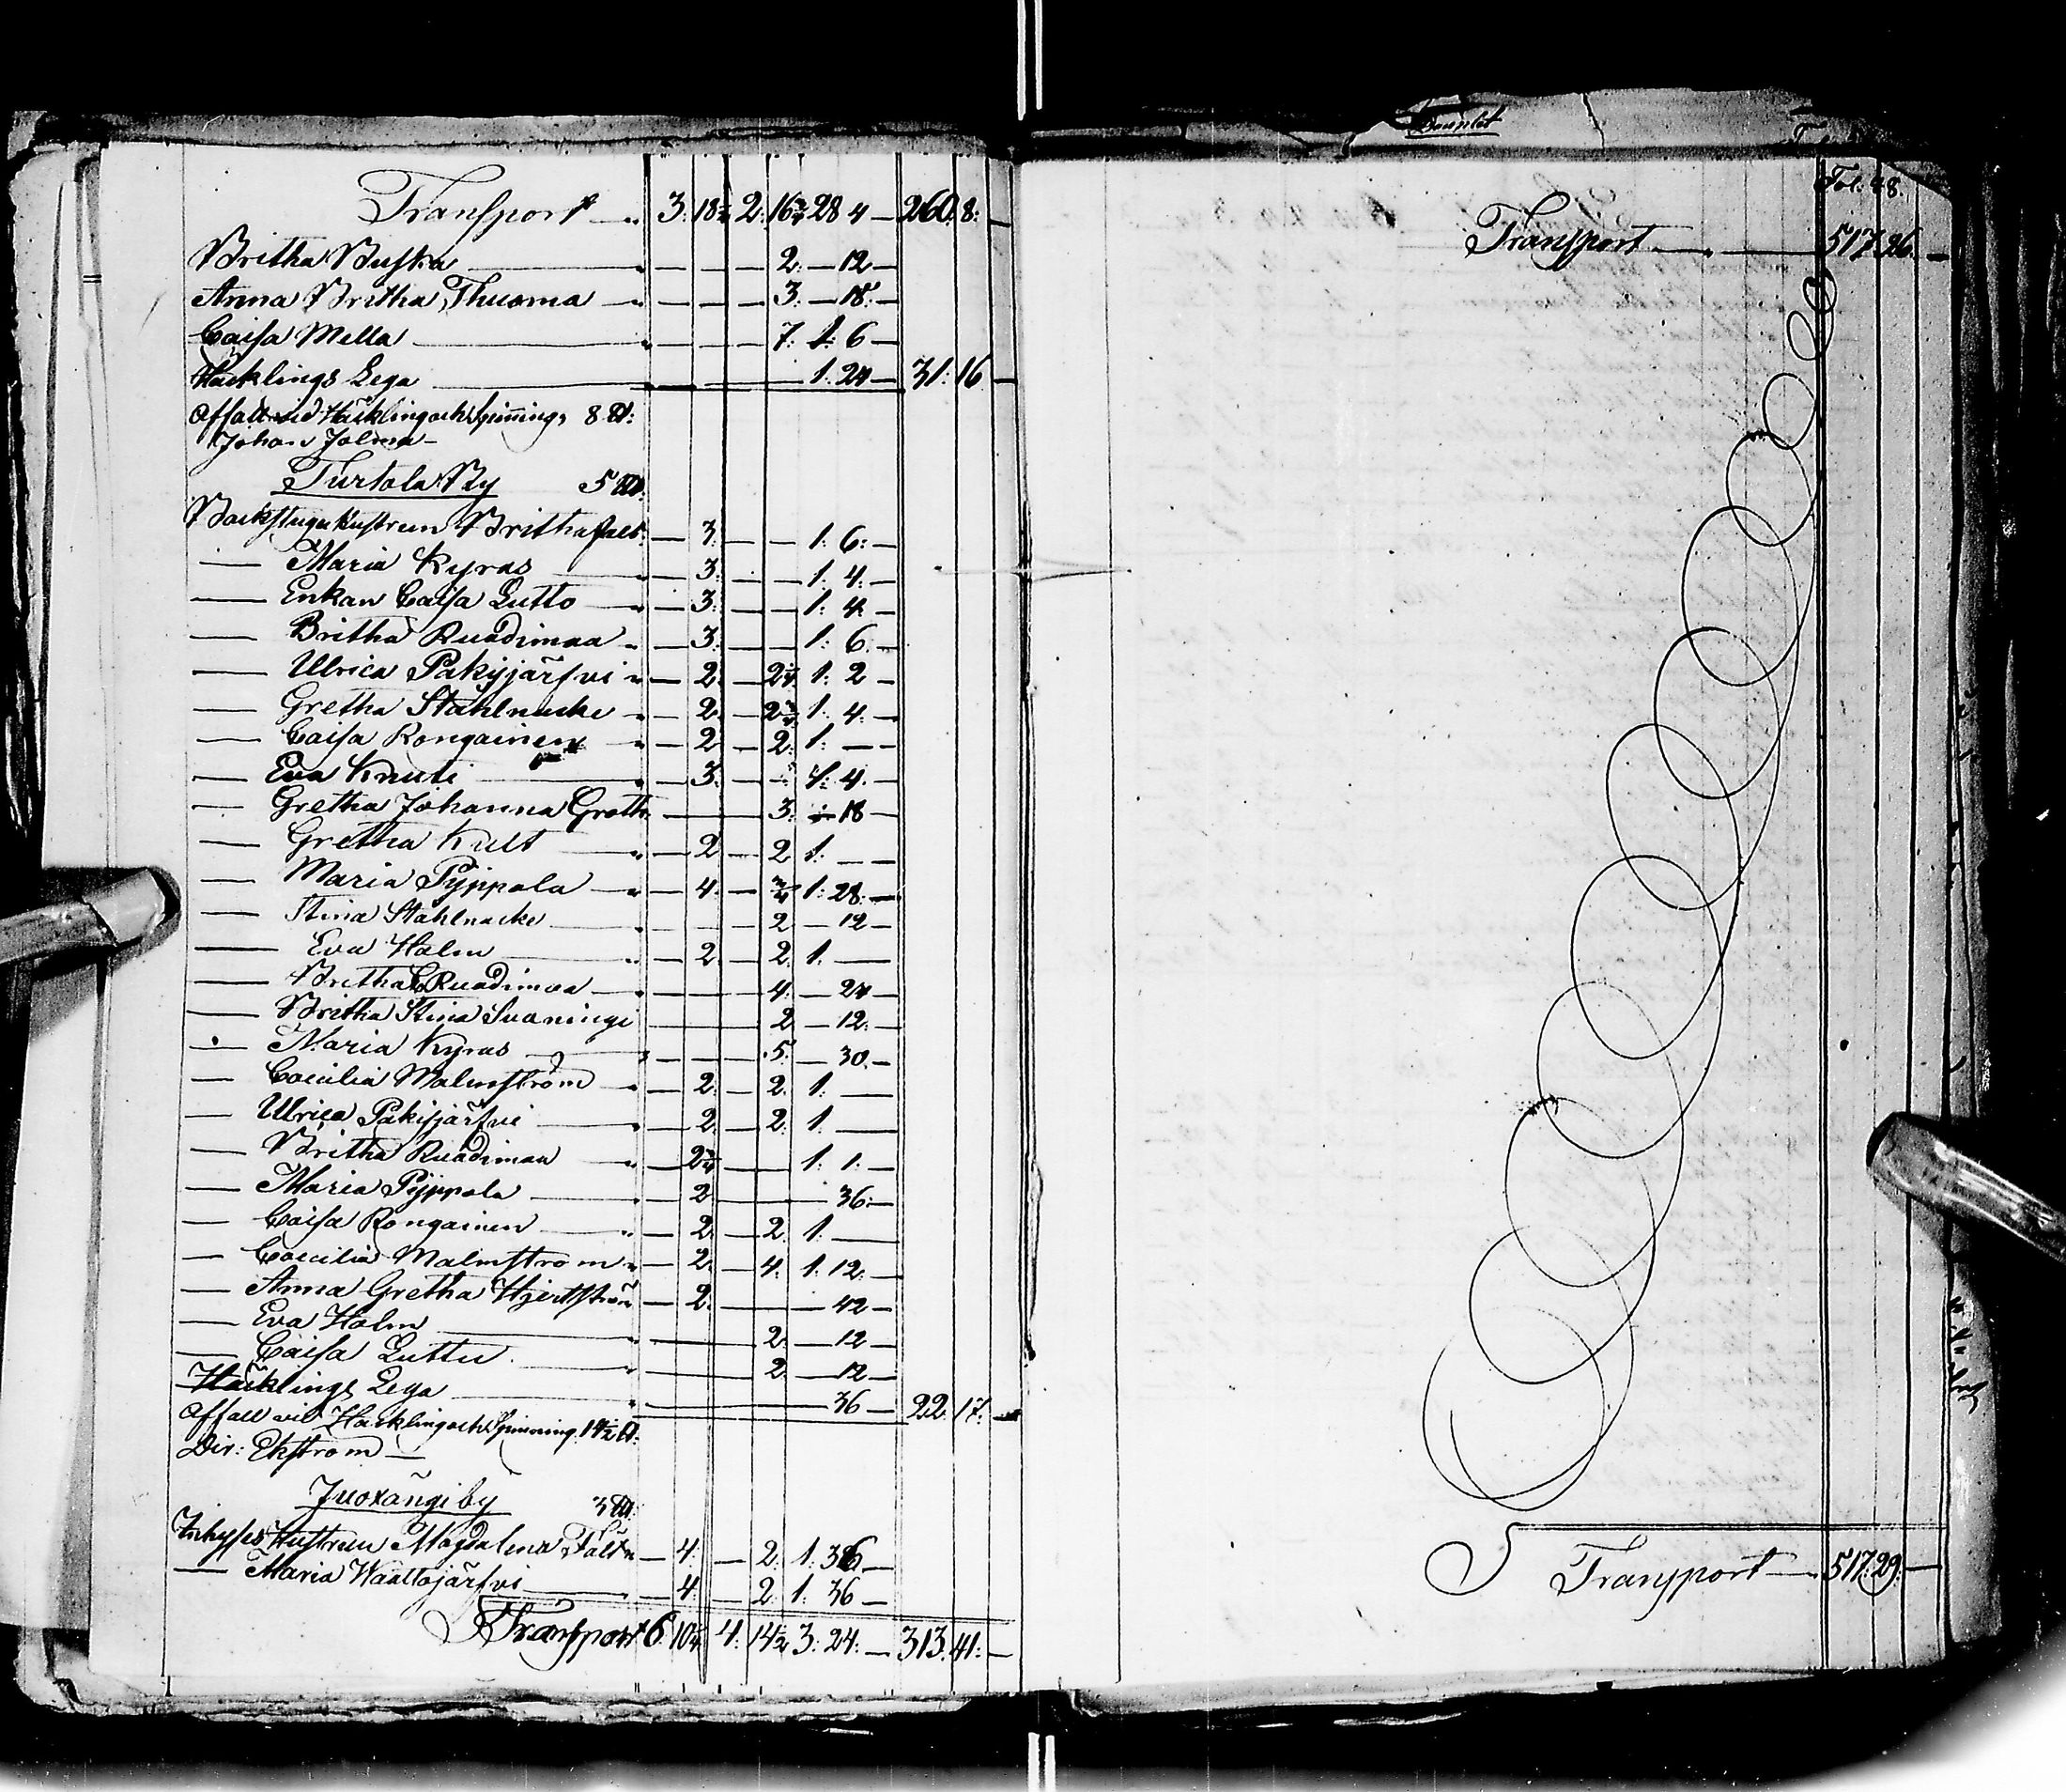 Transport 3. 18½ 2. 16¾ 28 4 — 260. 8. —
Britha Buska — — — 2. — 12 —
Anna Britha Thuoma — — — 3. — 18. —
Caisa Mella — — — 7. 1. 6 —
Häcklings Lega 1. 24 — 31. 16 —
Affall vid Häckling och Spinning 8 ℔:
Johan Jolma —
Turtola By 5 ℔.
Backstugu Hustrun Britha — 3. — — 1. 6. —
— Maria Kyras — 3. — — 1. 4. —
— Enkan Caisa Lutto — 3. — — 1. 4. —
— Britha Ruadimaa — 3. — — 1. 6. —
— Ulrica Pakijärfvi — 2. — 2¼ 1. 2 —
— Gretha Stahlnacke — 2. — 2¾ 1. 4. —
— Caisa Rongainen — 2 — 2. 1. — —
— Eva Knuti — 3. — — 1. 4. —
— Gretha Johanna Groth — 3. — 18 —
— Gretha Kult — 2 — 2 1. — —
— Maria Pyppola — 4. — ¾ 1. 28. —
— Stina Stahlnacke — — 2 — 12 —
— Eva Halm — 2. — 2. 1. —
— Britha C Ruadimaa — — 4. — 24 —
— Britha Stina Suaningi 2 — 12. —
— Maria Kyras — — 5. — 30. —
— Cæcilia Malmström — 2. — 2. 1. —
— Ulrica Pakijärfvi — 2. — 2. 1. —
— Britha Ruadimaa — 2¾ — — 1. 1. —
— Maria Pyppola — 2 — — 36. —
— Caisa Rongainen — 2. — 2. 1. —
— Cæcilia Malmstrom — 2. — 4. 1. 12. —
— Anna Gretha Hjertström — 2. — — 42 —
— Eva Halm — 2. — 12 —
— Caisa Luttu — 2. — 12 —
Häcklings Lega — 36 — 22. 17. —
Affall vid Häckling och Spinning 14½ ℔.
Dir: Ekstrom —
Juoxangi by 3 ℔:
Inhyses Hustrun Magdalena Fält — 4. — 2. 1. 36 —
— Maria Waattojärfvi — 4. — 2. 1. 36 —
Transport 6. 10¼ 4. 14½ 3. 24. — 313. 41. —
Fol. 48.
Transport — 517. 26. —
Transport — 517. 29. —